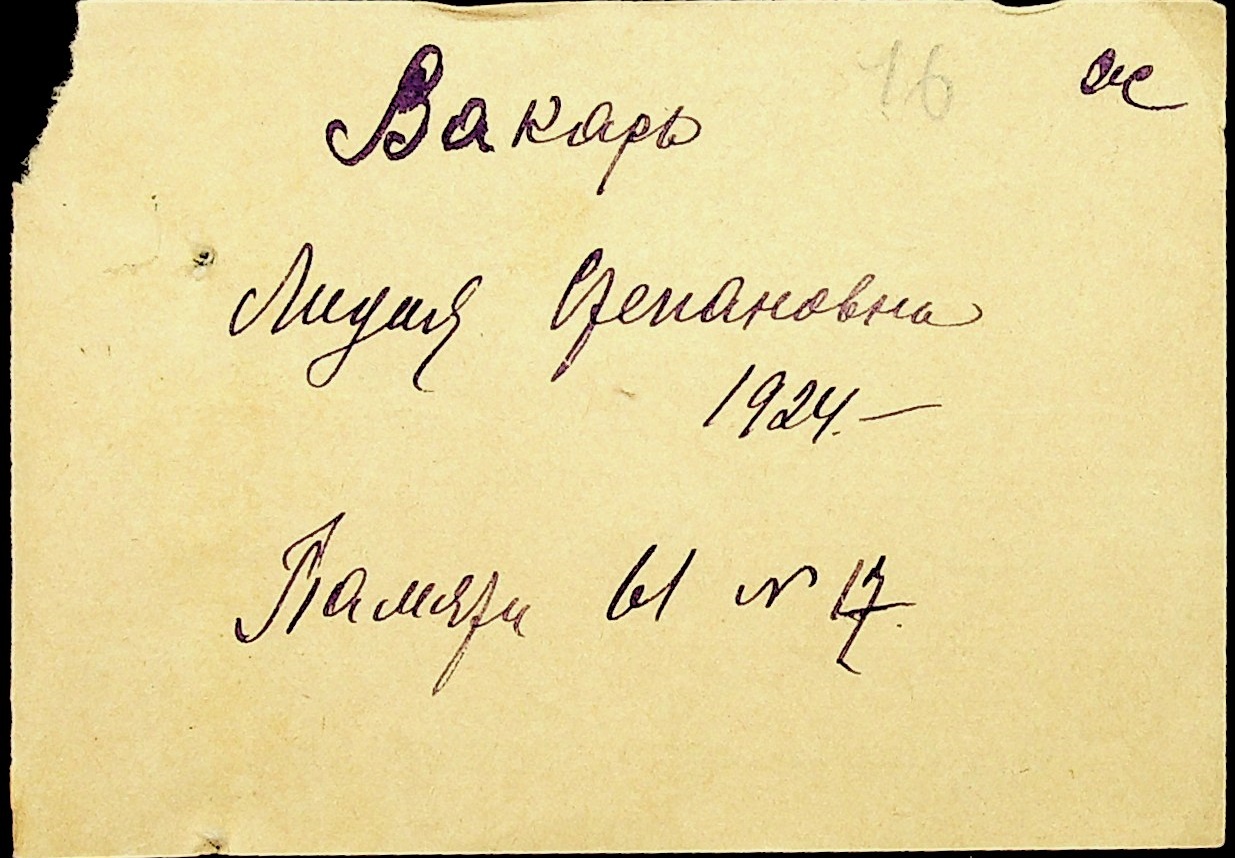 16 ж
Вакарь
Лидия Степановна
1924.–
Памяти 61 № 17.